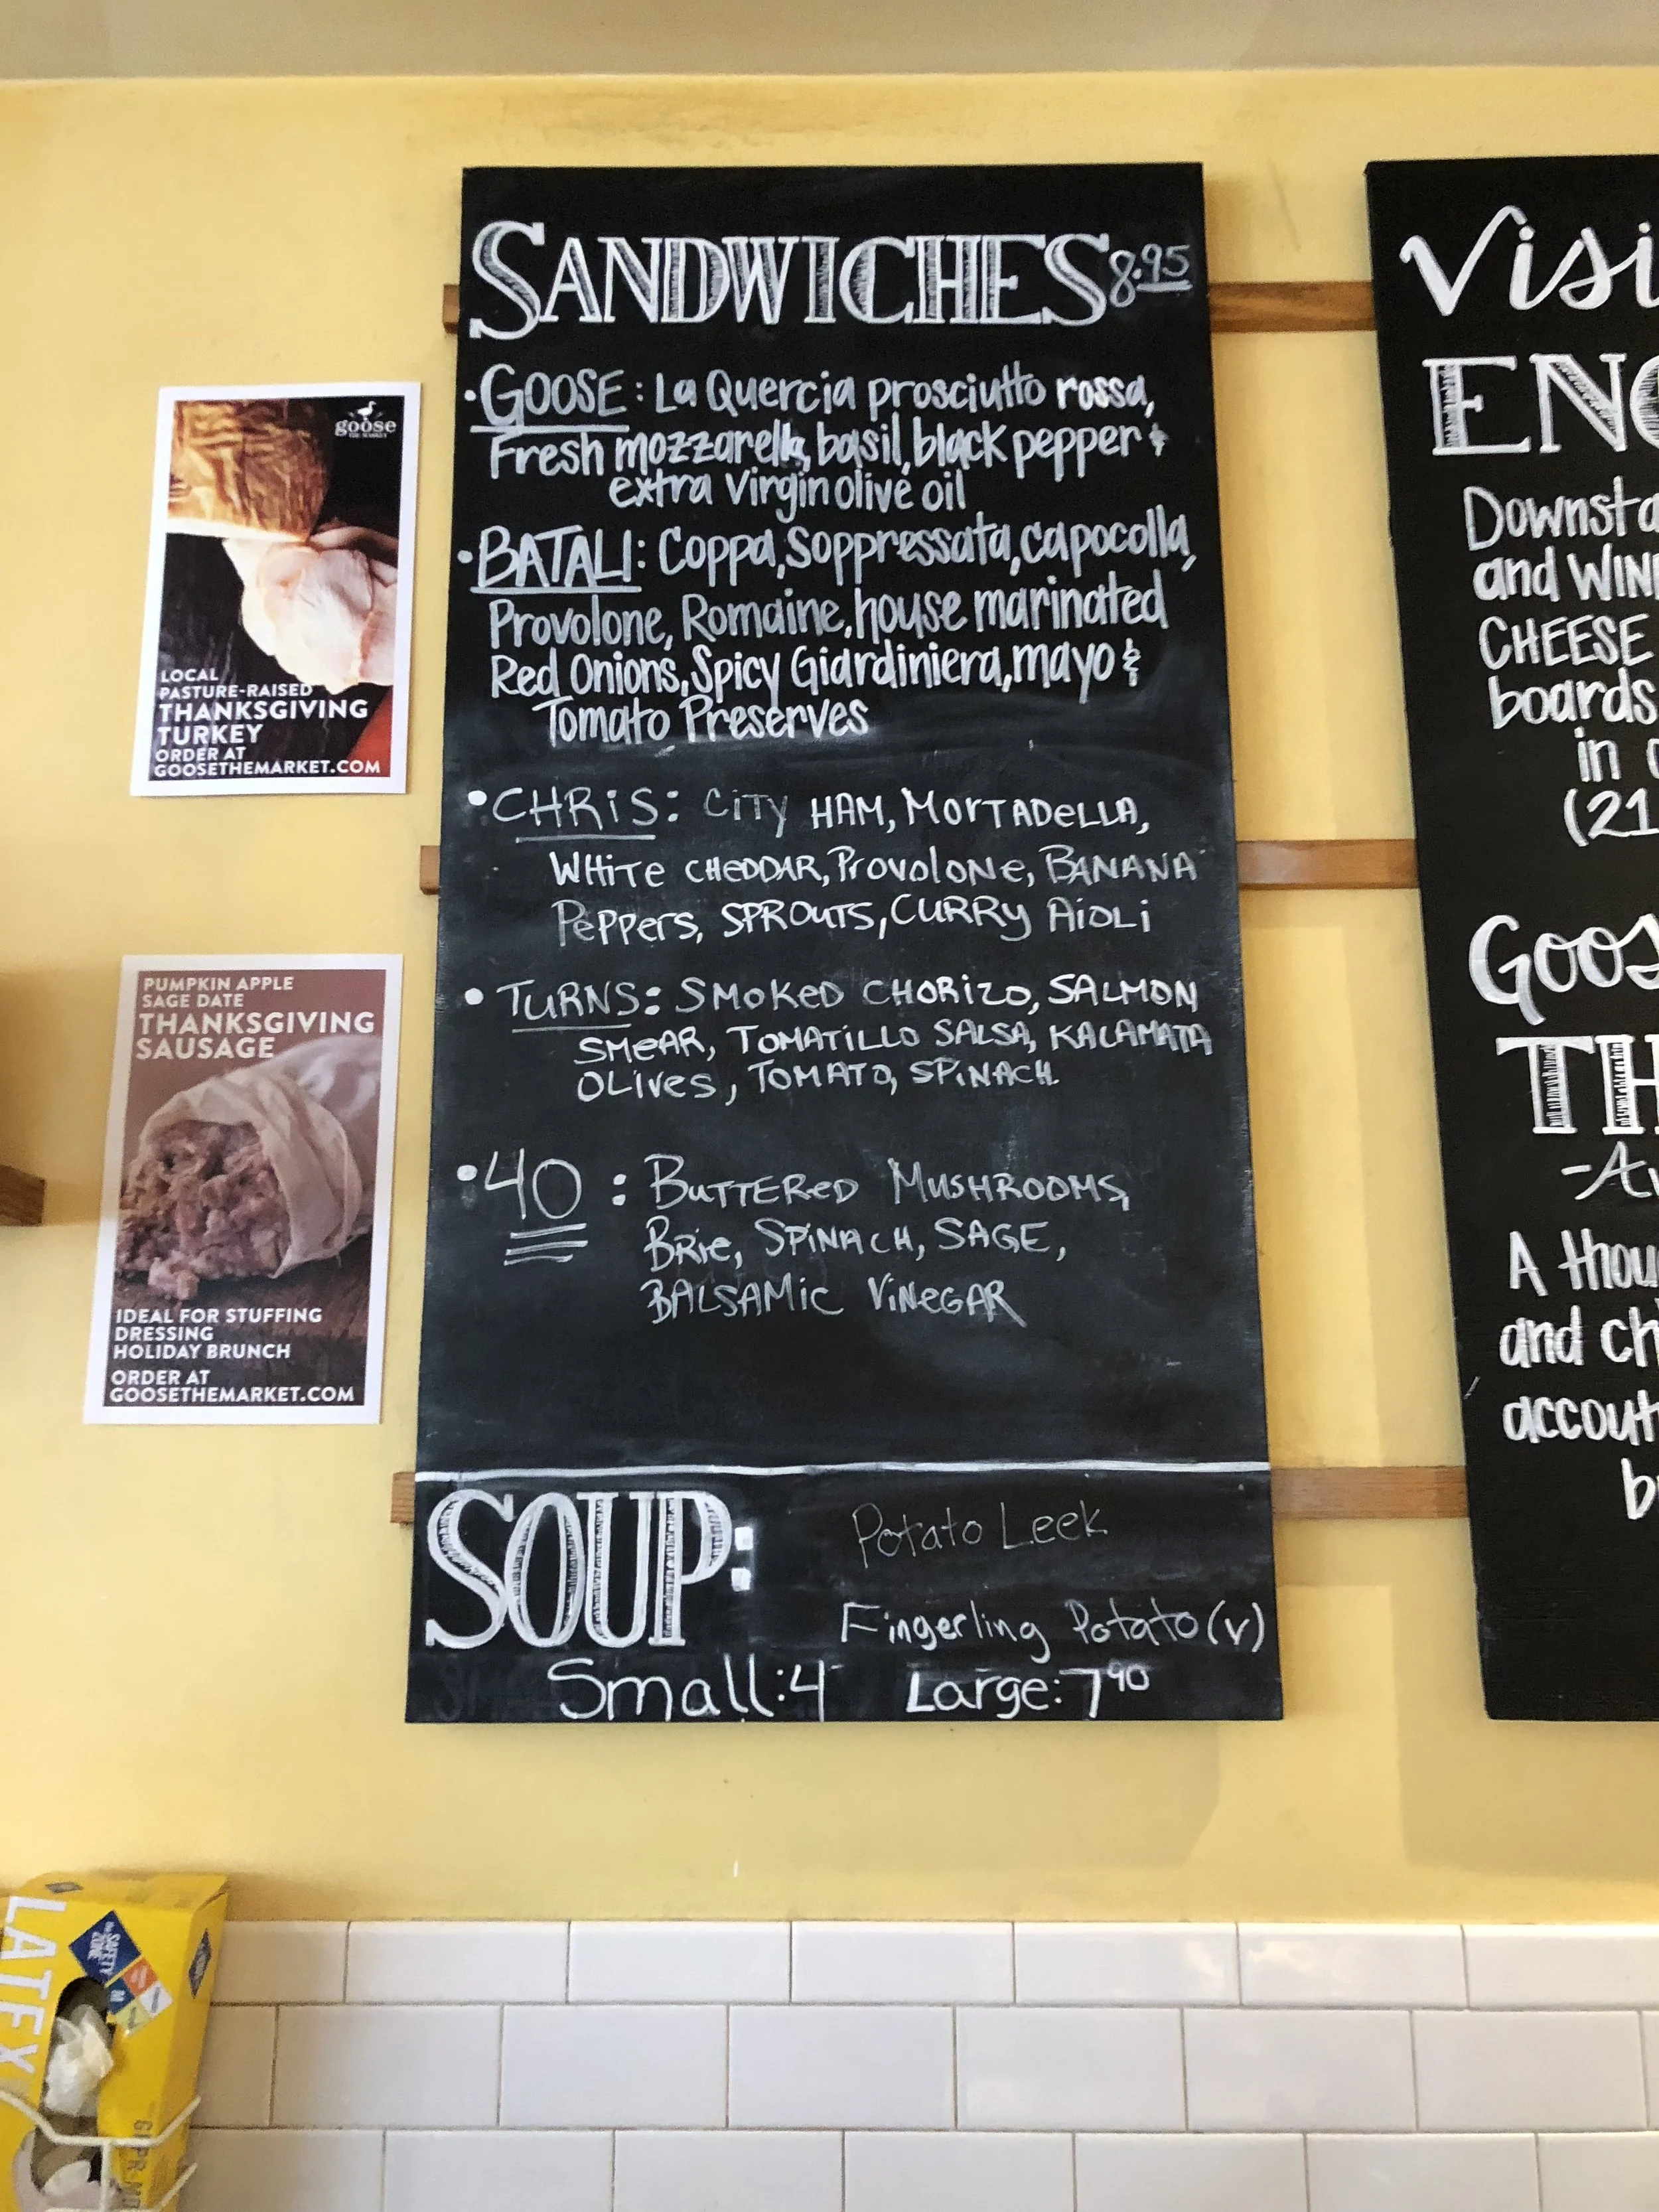 SANDWICHES 8.95
• GOOSE: La Quercia prosciutto rossa,
Fresh mozzarella, basil, black pepper &
extra virgin olive oil
• BATALI: Coppa, Soppressata, capocolla,
Provolone, Romaine, house marinated
Red Onions, Spicy Giardiniera, mayo &
Tomato Preserves
• CHRiS: CiTy HAM, MORTADeLLA,
WHiTe CHeDDAR, ProvoloNe, BANANA
PePPers, SPROuTS, CURRy AiOLi
• TURNS: SMOKeD CHORIZO, SALMON
SMeAR, TOMATiLLO SALSA, KALAMATA
OLives, TOMATO, SPiNACH.
• 40: BuTTeReD MUSHROOMS,
BRie, SPiNACH, SAGE,
BALSAMiC ViNeGAR
SOUP:
Potato Leek
Fingerling Potato (v)
Small: 4 Large: 7 90
goose
THE MARKET
LOCAL
PASTURE-RAISED
THANKSGIVING
TURKEY
ORDER AT
GOOSETHEMARKET.COM
PUMPKIN APPLE
SAGE DATE
THANKSGIVING
SAUSAGE
IDEAL FOR STUFFING
DRESSING
HOLIDAY BRUNCH
ORDER AT
GOOSETHEMARKET.COM
Visi
ENO
Downsta
and WIN
CHEESE
boards
in
(21
Goos
TH
-Av
A thou
and ch
accout
b
LATEX
the SAFETY ZONE